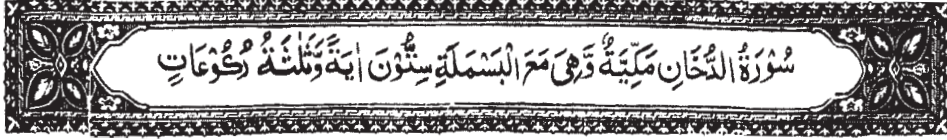 سُوْرَةُ الدُّخَانِ مَكِّيَّةٌ وَّهِىَ مَعَ الْبَسْمَلَةِ سِتُّوْنَ اٰيَةً وَّثَلٰثَةُ رُكُوْعَاتٍ